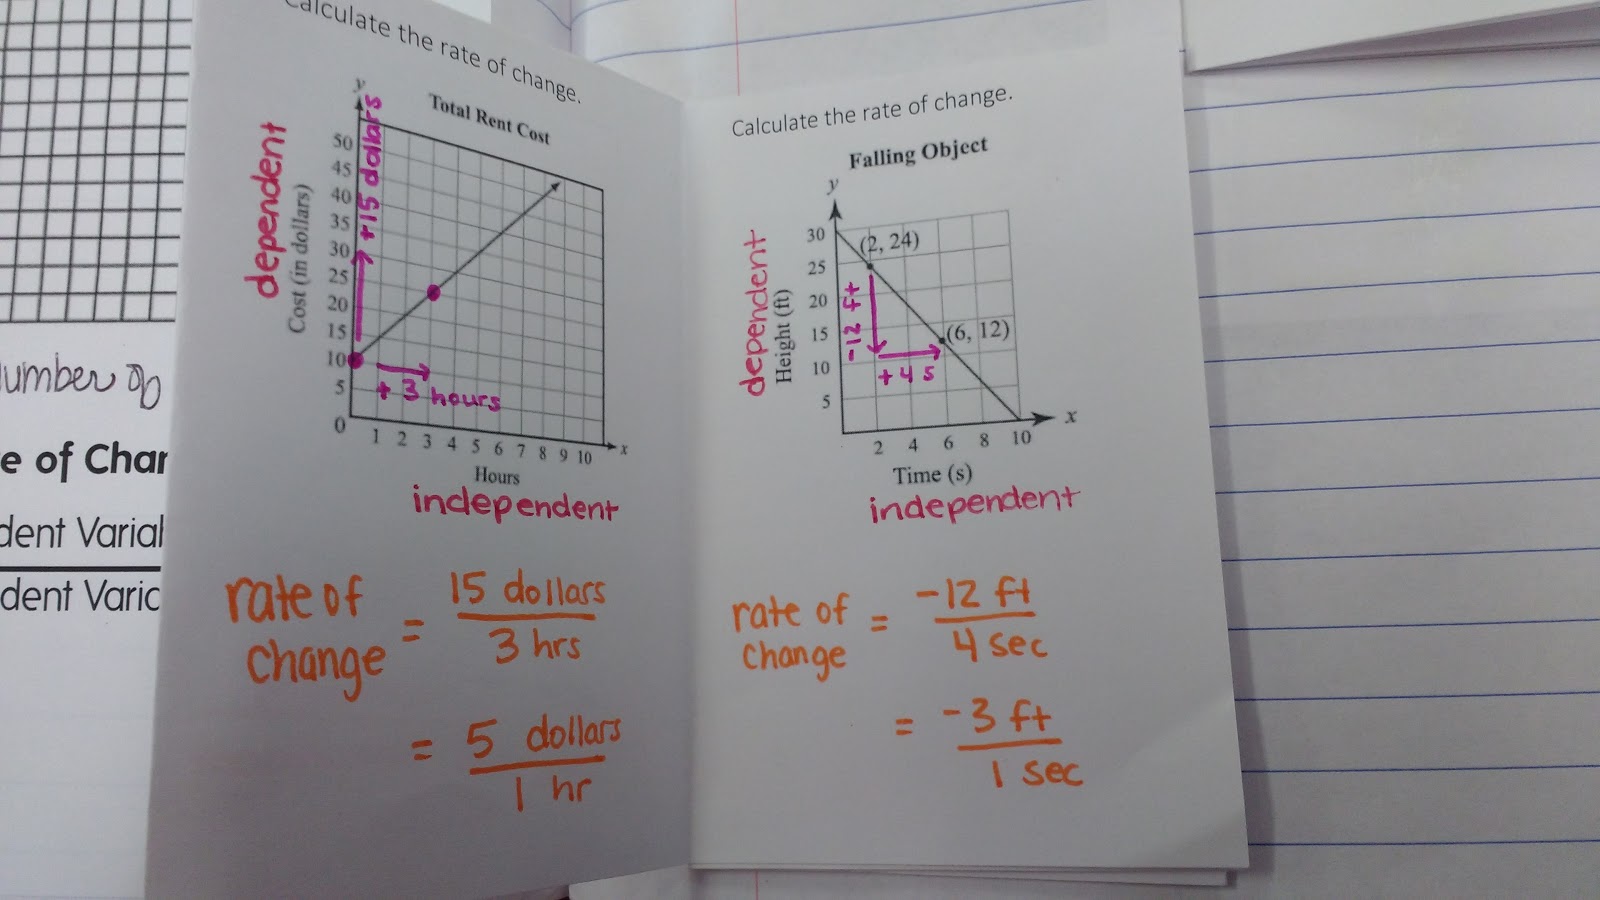 umber of
e of Char
dent Varial
dent Varic
Calculate the rate of change.
Total Rent Cost
y
50
45
40
35
30
25
20
15
10
5
0
dependent
Cost (in dollars)
+15 dollars
+ 3 hours
1 2 3 4 5 6 7 8 9 10 x
Hours
independent
rate of change = 15 dollars / 3 hrs
= 5 dollars / 1 hr
Calculate the rate of change.
Falling Object
y
30
25
20
15
10
5
dependent
Height (ft)
(2, 24)
-12 ft
(6, 12)
+4 s
2 4 6 8 10 x
Time (s)
independent
rate of change = -12 ft / 4 sec
= -3 ft / 1 sec